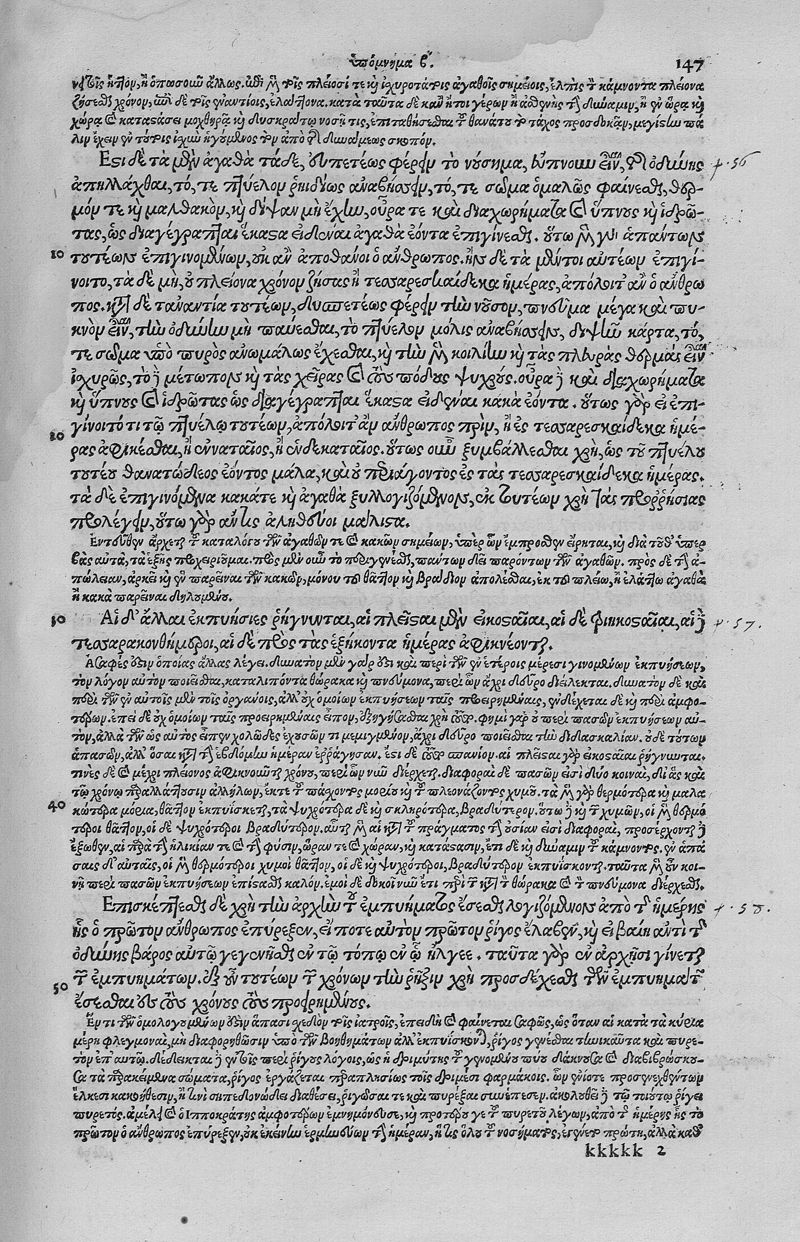 ὑπόμνημα β. 147
ζήσεσθαι χρόνον, ἐπὶ δὲ τοῖς ἐναντίοις, ἐλάττονα. κατὰ ταῦτα δὲ κἂν ἤτοι γέρων ἢ ἀσθενὴς τὴν δύναμιν, ἢ ἐν ὥρᾳ καὶ
χώρᾳ καὶ καταστάσει μοχθηρᾷ καὶ δυσκράτῳ νοσῇ τις,
λιν ἔχειν ἐν τούτοις ἰσχὺν ἡγούμενος τὸν ἀπὸ τῆς δυνάμεως σκοπόν.
Ἔστι δὲ τὰ μὲν ἀγαθὰ τάδε, εὐπετέως φέρειν τὸ νόσημα, εὔπνουν εἶναι, τῆς ὀδύνης + .56
ἀπηλλάχθαι, τό, τε πτύελον ῥηϊδίως ἀναβήσσειν, τό, τε σῶμα ὁμαλῶς φαίνεσθαι, θερ-
μόν τε καὶ μαλθακόν, καὶ δίψαν μὴ ἔχειν, οὖρα τε καὶ διαχωρήματα καὶ ὕπνους καὶ ἱδρῶ-
τας, ὡς διαγέγραπται ἕκαστα εἰδέναι ἀγαθὰ ἐόντα ἐπιγίνεσθαι. οὕτω μὲν γὰρ ἁπάντων
10 τουτέων ἐπιγινομένων, οὐκ ἂν ἀποθάνοι ὁ ἄνθρωπος. ἢν δὲ τὰ μέν τοι αὐτέων ἐπιγί-
νοιτο, τὰ δὲ μὴ, οὐ πλείονα χρόνον ζήσας ἢ τεσσαρεσκαίδεκα ἡμέρας, ἀπόλοιτ’ ἂν ὁ ἄνθρω
πος. κατὰ δὲ τἀναντία τουτέων, δυσπετέως φέρειν τὴν νοῦσον, πνεῦμα μέγα καὶ πυ-
κνὸν εἶναι, τὴν ὀδύνην μὴ παύεσθαι, τὸ πτύελον μόλις ἀναβήσσειν, διψῆν κάρτα, τό,
τε σῶμα ὑπὸ πυρὸς ἀνωμάλως ἔχεσθαι, καὶ τὴν μὲν κοιλίην καὶ τὰς πλευρὰς θερμὰς εἶναι
ἰσχυρῶς, τὸ δὲ μέτωπον καὶ τὰς χεῖρας καὶ τοὺς πόδας ψυχρούς. οὖρα δὲ καὶ διαχωρήματα
καὶ ὕπνους καὶ ἱδρῶτας ὡς διαγέγραπται ἕκαστα εἰδέναι κακὰ ἐόντα. οὕτως γὰρ εἰ ἐπι-
γίνοιτό τι τῷ πτυέλῳ τουτέων, ἀπόλοιτ’ ἂν ἄνθρωπος πρὶν, ἢ ἐς τεσσαρεσκαίδεκα ἡμέ-
20 ρας ἀφικέσθαι, ἢ ἐνναταῖος, ἢ ἑνδεκαταῖος. οὕτως οὖν ξυμβάλλεσθαι χρὴ, ὡς τοῦ πτυέλου
τουτέου θανατώδεος ἐόντος μάλα, καὶ οὐ περιάγοντος ἐς τὰς τεσσαρεσκαίδεκα ἡμέρας.
τὰ δὲ ἐπιγινόμενα κακά τε καὶ ἀγαθὰ ξυλλογιζόμενον, ἐκ τουτέων χρὴ τὰς προῤῥήσιας
προλέγειν, οὕτω γὰρ ἄν τις ἀληθεύοι μάλιστα.
Ἐντεῦθεν ἄρχεται τοῦ καταλόγου τῶν ἀγαθῶν τε καὶ κακῶν σημείων, ὑπὲρ ὧν ἔμπροσθεν εἴρηται, καὶ διὰ τοῦθ’ ὑπερ
βὰς αὐτὰ, τὰ ἑξῆς προχειρίσομαι.
πώλειαν, ἀρκεῖ καὶ ἓν παρεῖναι τῶν κακῶν, μόνου τοῦ θᾶττον καὶ βράδιον ἀπολέσθαι, ἐκ τοῦ πλείω, ἢ ἐλάττω ἀγαθὰ
ἢ κακὰ παρεῖναι δηλουμένου.
30 Αἱ δ’ ἄλλαι ἐκπυήσιες ῥήγνυνται, αἱ πλεῖσται μὲν εἰκοσταῖαι, αἱ δὲ τριηκοσταῖαι, αἱ δὲ + .57.
τεσσαρακονθήμεροι, αἱ δὲ πρὸς τὰς ἑξήκοντα ἡμέρας ἀφικνέονται.
Ἀσαφές ἐστιν ὁποίας ἄλλας λέγει. δυνατὸν μὲν γάρ ἐστι καὶ περὶ τῶν ἐν ἑτέροις μέρεσι γινομένων ἐκπυήσεων,
τὸν λόγον αὐτὸν ποιεῖσθαι, καταλιπόντα θώρακα καὶ πνεύμονα, περὶ ὧν ἄχρι δεῦρο διείλεκται. δυνατὸν δὲ καὶ
περὶ τῶν ἐν αὐτοῖς μὲν τοῖς ὀργάνοις, ἀλλ’ οὐχ ὁμοίων ἐκπυήσεων ταῖς προειρημέναις, ἐνδέχεται δὲ καὶ περὶ ἀμφο-
τέρων. ἐπεὶ δὲ οὐχ ὁμοίων ταῖς προειρημέναις εἶπον, ἐξηγήσασθαι χρὴ τοῦτο. φημὶ γὰρ οὐ περὶ πασῶν ἐκπυήσεων αὐ-
τὸν, ἀλλὰ τῶν ὡς αὐτὸς εἶπεν χολῶδες ἐχουσῶν τι μεμιγμένον, ἄχρι δεῦρο ποιεῖσθαι τὴν διδασκαλίαν. οὐδὲ τούτων
ἁπασῶν, ἀλλ’ ὅσαι κατὰ τὴν ἑβδόμην ἡμέραν ἐῤῥάγησαν. ἔστι δὲ τοῦτο σπάνιον. αἱ πλεῖσται γὰρ εἰκοσταῖαι ῥήγνυνται.
τινὲς δὲ καὶ μέχρι πλείονος ἀφικνοῦνται χρόνου, περὶ ὧν νῦν διέρχεται. διαφοραὶ δὲ πασῶν εἰσὶ δύο κοιναὶ, δι’ ἃς καὶ
τῷ χρόνῳ παραλλάττουσιν ἀλλήλων, ἔκ τε τοῦ πάσχοντος μορίου καὶ τοῦ πλεονάζοντος χυμοῦ. τὰ μὲν γὰρ θερμότερα καὶ μαλα
40 κώτερα μόρια, θᾶττον ἐκπυΐσκεται, τὰ ψυχρότερα δὲ καὶ σκληρότερα, βραδύτερον. οὕτω δὲ καὶ τῶν χυμῶν, οἱ μὲν θερμό
τεροι θᾶττον, οἱ δὲ ψυχρότεροι βραδύτερον. αὗται μὲν αἱ κατὰ τοῦ πράγματος τὴν οὐσίαν εἰσὶ διαφοραὶ, προσέρχονται δὲ
ἔξωθεν, αἱ παρὰ τὴν ἡλικίαν τε καὶ τὴν φύσιν, ὥραν τε καὶ χώραν, καὶ κατάστασιν, ἔτι δὲ καὶ δύναμιν τοῦ κάμνοντος. ἐν ἁπά
σαις δ’ αὐταῖς, οἱ μὲν θερμότεροι χυμοὶ θᾶττον, οἱ δὲ καὶ ψυχρότεροι, βραδύτερον ἐκπυΐσκονται. ταῦτα μὲν οὖν κοι-
νῇ περὶ πασῶν ἐκπυήσεων ἐπίστασθαι καλόν. ἐμοὶ δὲ δοκεῖ νῦν ἔτι περὶ τῶν κατὰ τὸν θώρακα καὶ τὸν πνεύμονα διέρχεσθαι.
Ἐπισκέπτεσθαι δὲ χρὴ τὴν ἀρχὴν τοῦ ἐμπυήματος ἔσεσθαι λογιζόμενον ἀπὸ τῆς ἡμέρης + .58.
ἧς ὁ πρῶτον ἄνθρωπος ἐπύρεξεν, εἴ ποτε αὐτὸν πρῶτον ῥῖγος ἔλαβεν, καὶ εἰ φαίη ἀντὶ τῆς
ὀδύνης βάρος αὐτῷ γεγενῆσθαι ἐν τῷ τόπῳ ἐν ᾧ ἤλγεε. ταῦτα γὰρ ἐν ἀρχῇσι γίνεται
50 τῶν ἐμπυημάτων. ἐξ ὧν τουτέων τῶν χρόνων τὴν ῥῆξιν χρὴ προσδέχεσθαι τῶν ἐμπυημάτων
ἔσεσθαι ἐς τοὺς χρόνους τοὺς προειρημένους.
Ἕν τι τῶν ὁμολογουμένων ἐστὶν ἅπασι σχεδὸν τοῖς ἰατροῖς, ἐπειδὴ καὶ φαίνεται σαφῶς, ὡς ὅταν αἱ κατὰ τὰ κύρια
μέρη φλεγμοναὶ, μὴ διαφορηθῶσιν ὑπὸ τῶν βοηθημάτων ἀλλ’ ἐκπυΐσκωνται, ῥῖγος γενέσθαι τηνικαῦτα καὶ πυρε-
τὸν ἐπ’ αὐτῷ. δέδεικται δὲ ἐν τοῖς περὶ ῥίγους λόγοις, ὡς ἡ δριμύτης τοῦ γενομένου πύου δάκνουσα καὶ διαβιβρώσκου-
σα τὰ παρακείμενα σώματα, ῥῖγος ἐργάζεται παραπλησίως τοῖς δριμέσι φαρμάκοις. ὧν ἐνίοτε προσενεχθέντων
ἕλκεσι κακοήθεσιν, ἤ τινι σηπεδονώδει διαθέσει, ῥιγῶσαι τε καὶ πυρέξαι συνέπεσεν. ἀκολουθεῖ δὲ τῷ τοιούτῳ ῥίγει
πυρετός. ἀμέλει καὶ ὁ Ἱπποκράτης ἀμφοτέρων ἐμνημόνευσε, καὶ προτέρου γε τοῦ πυρετοῦ λέγων, ἀπὸ τῆς ἡμέρης ἧς τὸ
πρῶτον ὁ ἄνθρωπος ἐπύρεξεν, οὐκ ἐκείνην ἑρμηνεύων τὴν ἡμέραν, ἥτις ὅλου τοῦ νοσήματος, ἐγένετο πρώτη, ἀλλὰ καθ’
kkkkk 2